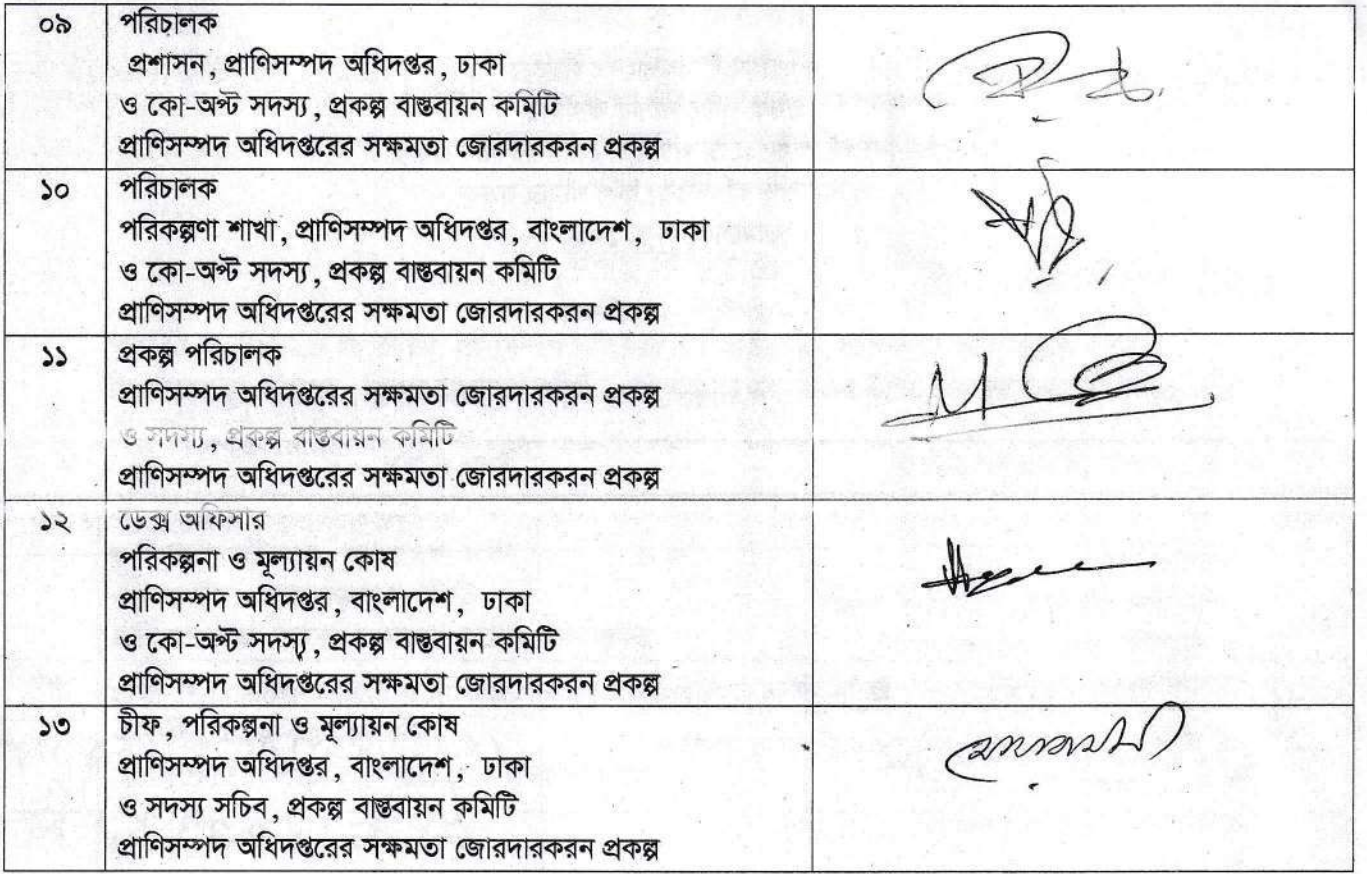 ০৯ পরিচালক
প্রশাসন, প্রাণিসম্পদ অধিদপ্তর, ঢাকা
ও কো-অপ্ট সদস্য, প্রকল্প বাস্তবায়ন কমিটি
প্রাণিসম্পদ অধিদপ্তরের সক্ষমতা জোরদারকরন প্রকল্প
১০ পরিচালক
পরিকল্পণা শাখা, প্রাণিসম্পদ অধিদপ্তর, বাংলাদেশ, ঢাকা
ও কো-অপ্ট সদস্য, প্রকল্প বাস্তবায়ন কমিটি
প্রাণিসম্পদ অধিদপ্তরের সক্ষমতা জোরদারকরন প্রকল্প
১১ প্রকল্প পরিচালক
প্রাণিসম্পদ অধিদপ্তরের সক্ষমতা জোরদারকরন প্রকল্প
ও সদস্য, প্রকল্প বাস্তবায়ন কমিটি
প্রাণিসম্পদ অধিদপ্তরের সক্ষমতা জোরদারকরন প্রকল্প
১২ ডেক্স অফিসার
পরিকল্পনা ও মূল্যায়ন কোষ
প্রাণিসম্পদ অধিদপ্তর, বাংলাদেশ, ঢাকা
ও কো-অপ্ট সদস্য, প্রকল্প বাস্তবায়ন কমিটি
প্রাণিসম্পদ অধিদপ্তরের সক্ষমতা জোরদারকরন প্রকল্প
১৩ চীফ, পরিকল্পনা ও মূল্যায়ন কোষ
প্রাণিসম্পদ অধিদপ্তর, বাংলাদেশ, ঢাকা
ও সদস্য সচিব, প্রকল্প বাস্তবায়ন কমিটি
প্রাণিসম্পদ অধিদপ্তরের সক্ষমতা জোরদারকরন প্রকল্প